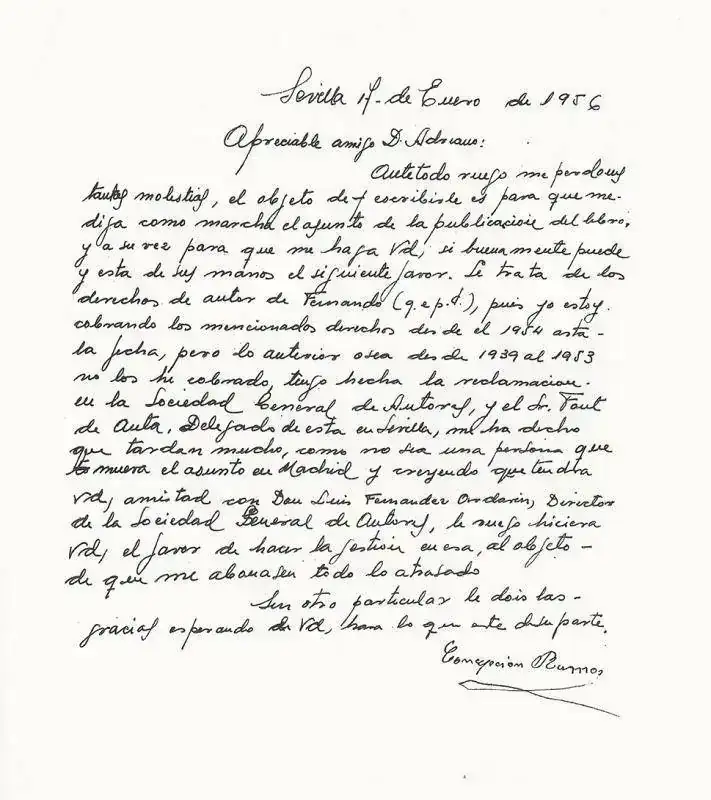 Sevilla 17- de Enero de 1956
Apreciable amigo D. Adriano:
Ante todo ruego me perdone
tantas molestias, el objeto de escribirle es para que me-
diga como marcha el asunto de la publicacion del libro,
y a su vez para que me haga Vd, si buenamente puede
y esta de sus manos el siguiente favor. Se trata de los
derechos de autor de Fernando (q.e.p.d.), pues yo estoy.
cobrando los mencionados derechos desde el 1954 asta-
la fecha, pero lo anterior osea desde 1939 al 1953
no los he cobrado, tengo hecha la reclamacion.
en la Sociedad General de Autores, y el Sr. Font
de Anta, Delegado de esta en Sevilla, me ha dicho
que tardan mucho, como no sea una persona que
mueva el asunto en Madrid y creyendo que tendra
Vd, amistad con Don Luis Fernandez Ordavin, Director
de la Sociedad General de Autores, le ruego hiciera
Vd, el favor de hacer la gestion en esa, al objeto-
de que me abonasen todo lo atrasado
Sin otro particular le dois las-
gracias esperando de Vd, hara lo que este de su parte.
Concepcion Ramos